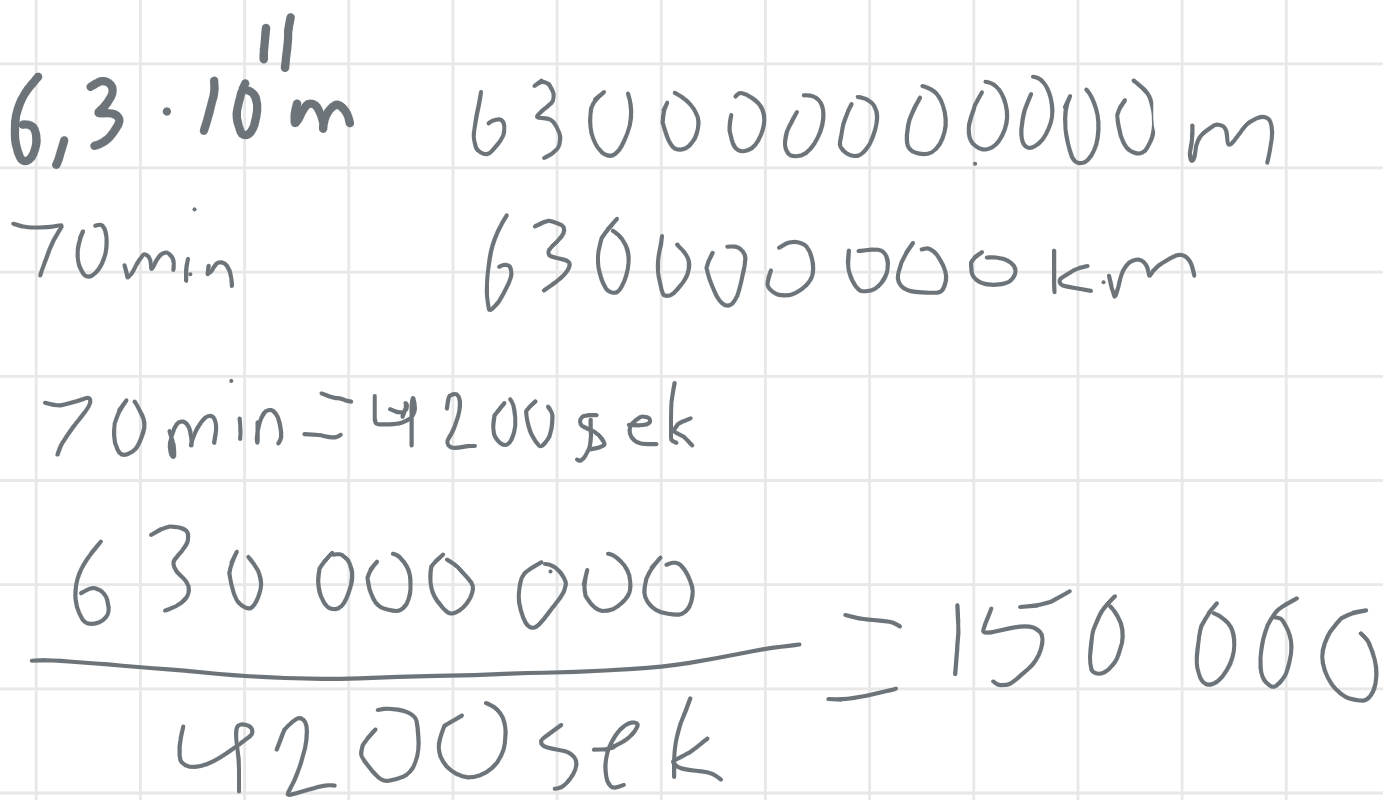 6,3 · 10¹¹ m 630000000000 m
70 min 630000000 km
70 min = 4200 sek
630 000 000
= 150 000
4200 sek